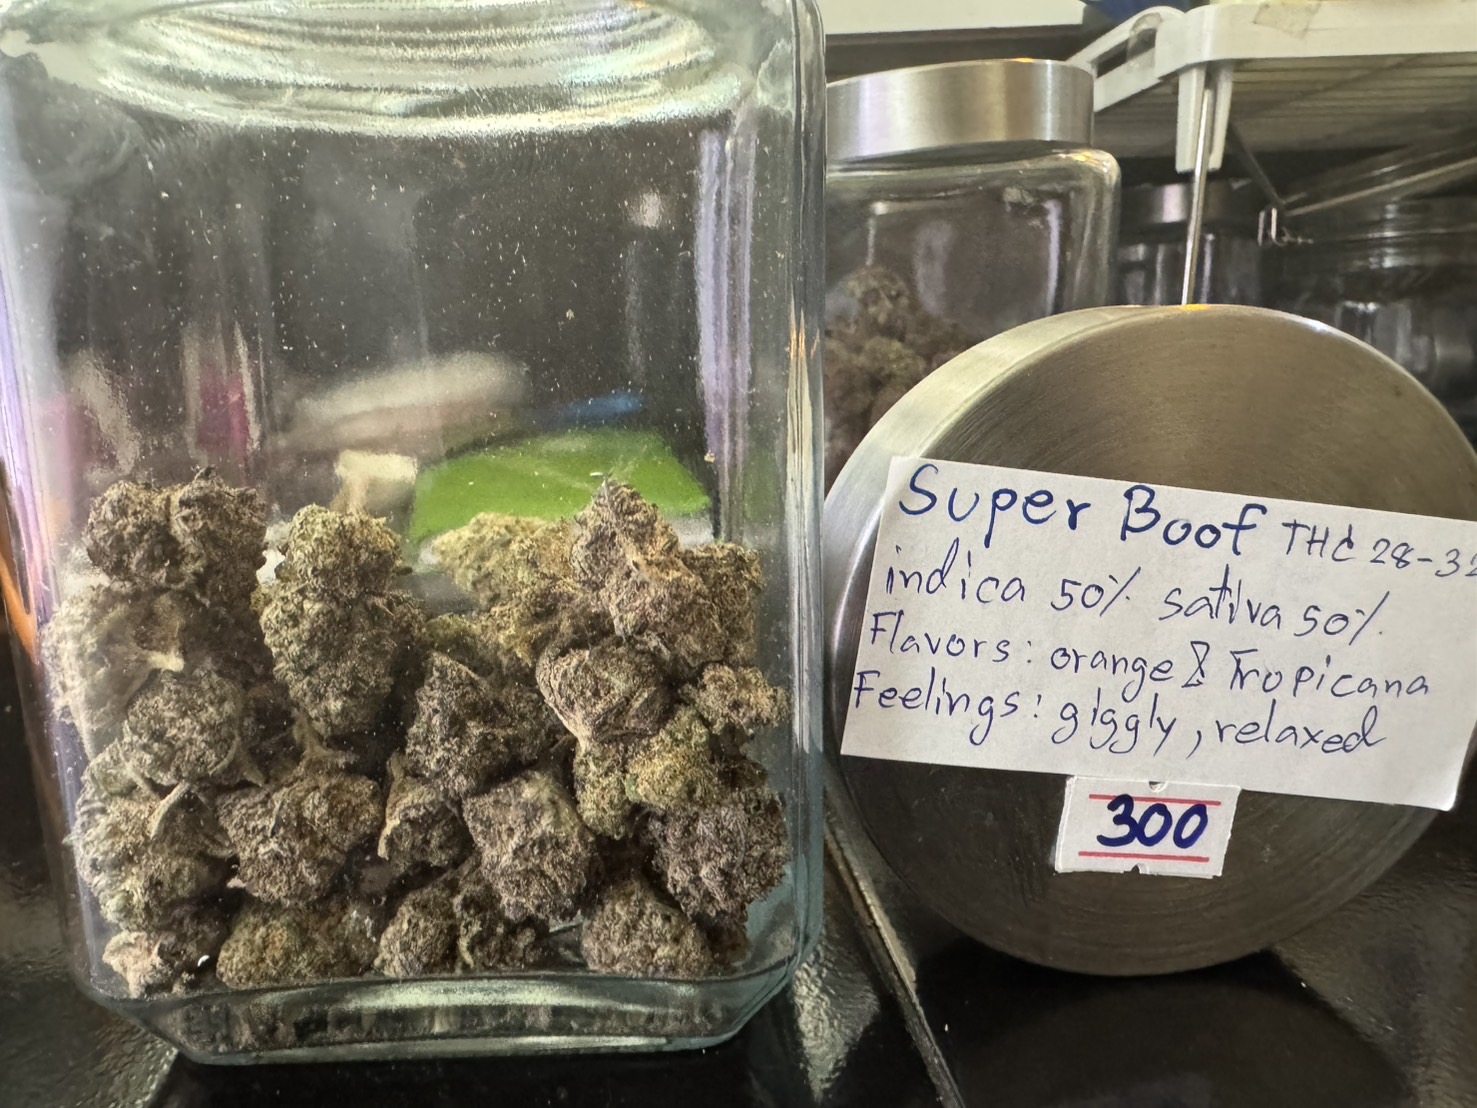 Super Boof THC 28-32
indica 50% sativa 50%
Flavors: orange & Tropicana
Feelings: giggly, relaxed
300